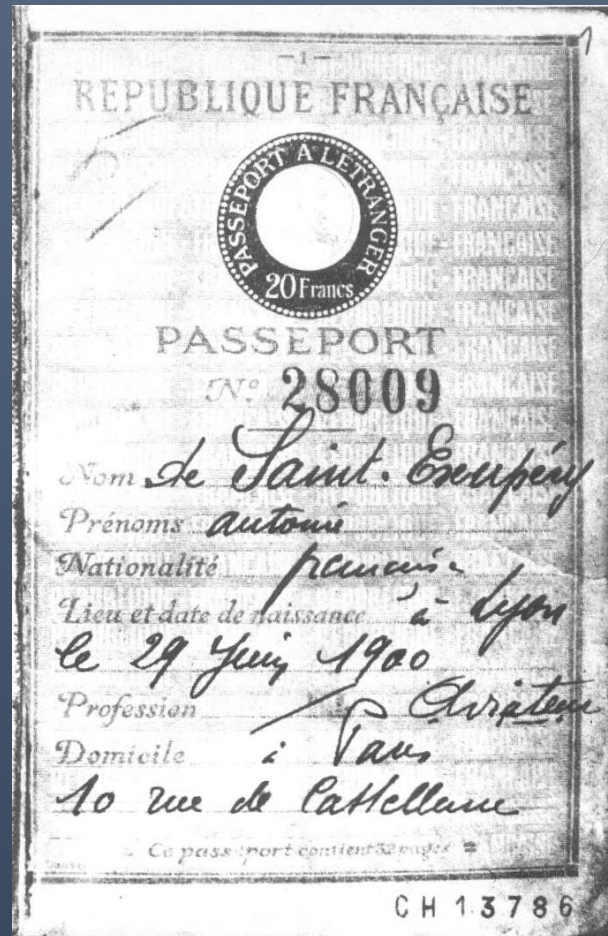 1
— 1 —
REPUBLIQUE FRANÇAISE
PASSEPORT A L'ETRANGER
20 Francs
PASSEPORT
N° 28009
Nom de Saint-Exupéry
Prénoms antoine
Nationalité française
Lieu et date de naissance à Lyon
le 29 Juin 1900
Profession Aviateur
Domicile à Paris
10 rue de Castellane
Ce passeport contient 32 pages
CH 13786